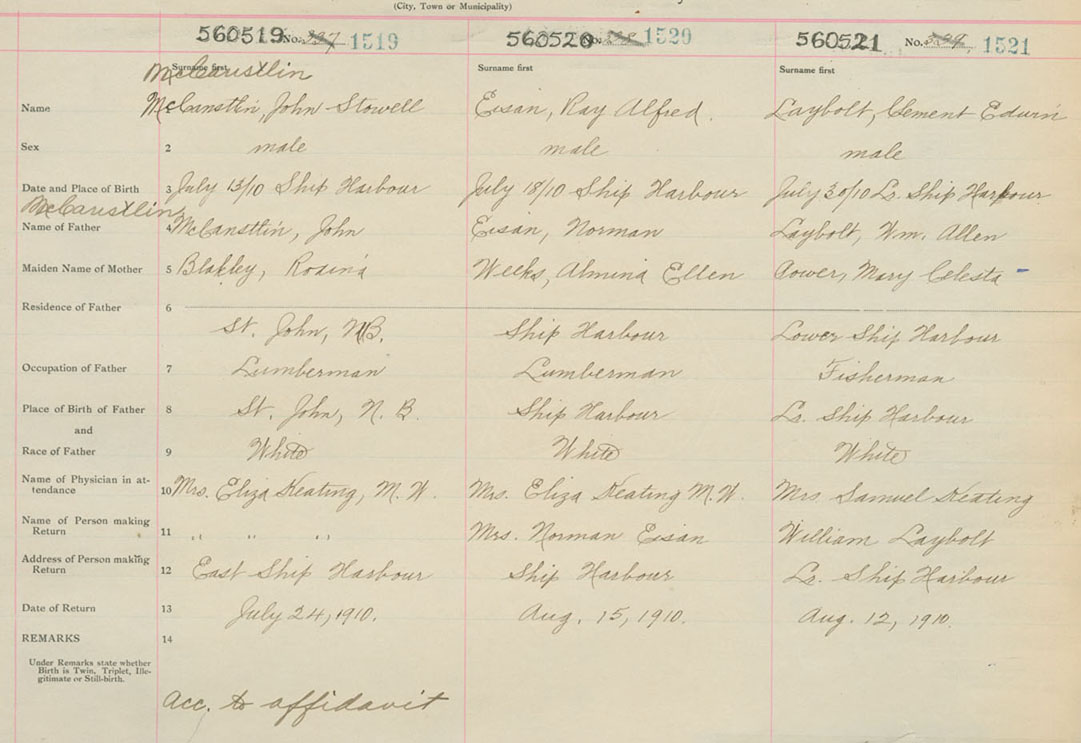 (City, Town or Municipality)
560519 No. 1519 560520 No. 1520 560521 No. 1521
Surname first Surname first Surname first
McCaustlin
Name McCanstlin, John Stowell Eisan, Ray Alfred. Laybolt, Clement Edwin
Sex 2 male male male
Date and Place of Birth 3 July 13/10 Ship Harbour July 18/10 Ship Harbour July 30/10 Lr. Ship Harbour
McCaustlin
Name of Father 4 McCanstlin, John Eisan, Norman Laybolt, Wm. Allen
Maiden Name of Mother 5 Blakley, Rosina Weeks, Almina Ellen Gower, Mary Celesta
Residence of Father 6
St. John, N.B. Ship Harbour Lower Ship Harbour
Occupation of Father 7 Lumberman Lumberman Fisherman
Place of Birth of Father 8 St. John, N. B. Ship Harbour Lr. Ship Harbour
and
Race of Father 9 White White White
Name of Physician in at-
tendance 10 Mrs. Eliza Keating, M. W. Mrs. Eliza Keating M.W. Mrs Samuel Keating
Name of Person making
Return 11 " " " Mrs. Norman Eisan William Laybolt
Address of Person making
Return 12 East Ship Harbour Ship Harbour Lr. Ship Harbour
Date of Return 13 July 24, 1910. Aug. 15, 1910. Aug. 12, 1910.
REMARKS 14
Under Remarks state whether
Birth is Twin, Triplet, Ille-
gitimate or Still-birth.
acc. to affidavit